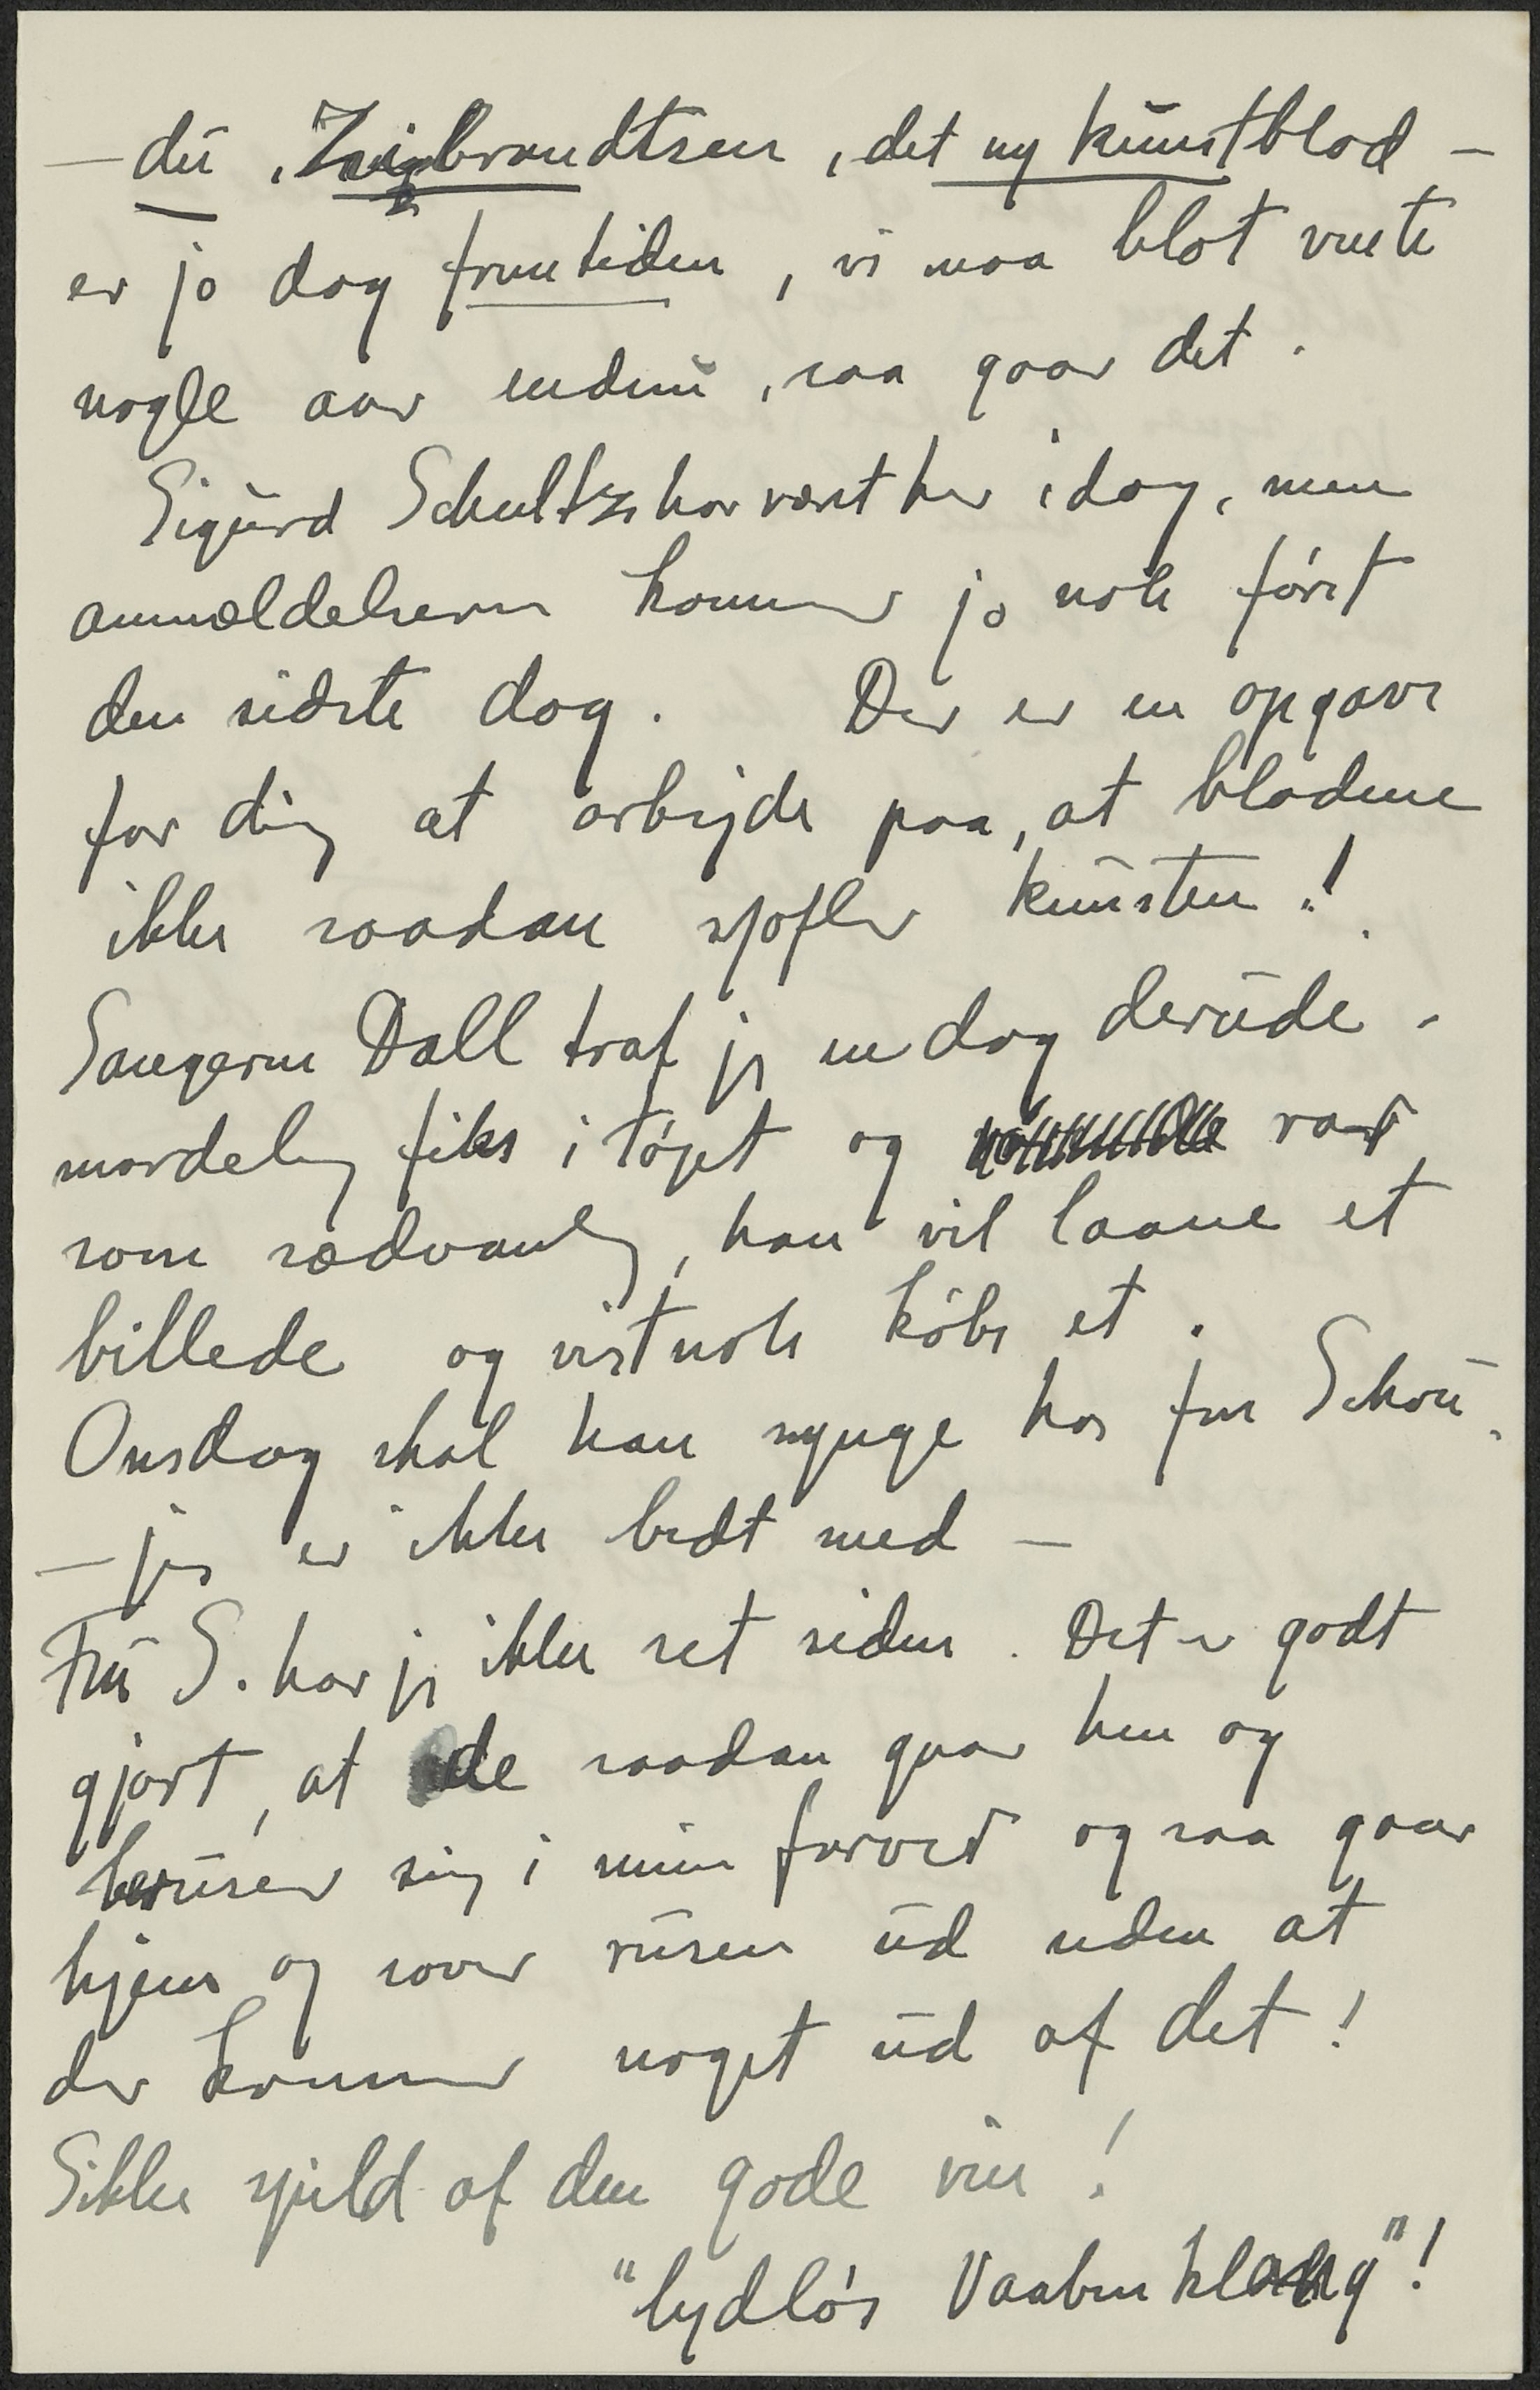 — du, Zeigbrandtsen, det ny kunstblad —
er jo dog fremtiden, vi maa blot vente
nogle aar endnu, saa gaar det.
Sigurd Schultz har været her idag, men
anmældelsern kommer jo nok først
den sidste dag. Der er en opgave
for dig at arbejde paa, at bladene
ikke saadan sjofler kunsten!
Sangeren Dall traf jeg en dag derude –
mordelig fiks i tøjet og rar
som sædvanlig, han vil laane et
billede og vistnok købe et.
Onsdag skal han synge hos fru Schou.
— jeg er ikke bedt med —
Fru S. har jeg ikke set siden. Det er godt
gjort, at de saadan gaar hen og
beruser sig i min farve og saa gaar
hjem og sover rusen ud uden at
der kommer noget ud af det!
Sikke spild af den gode vin!
"lydløs Vaabenklang"!